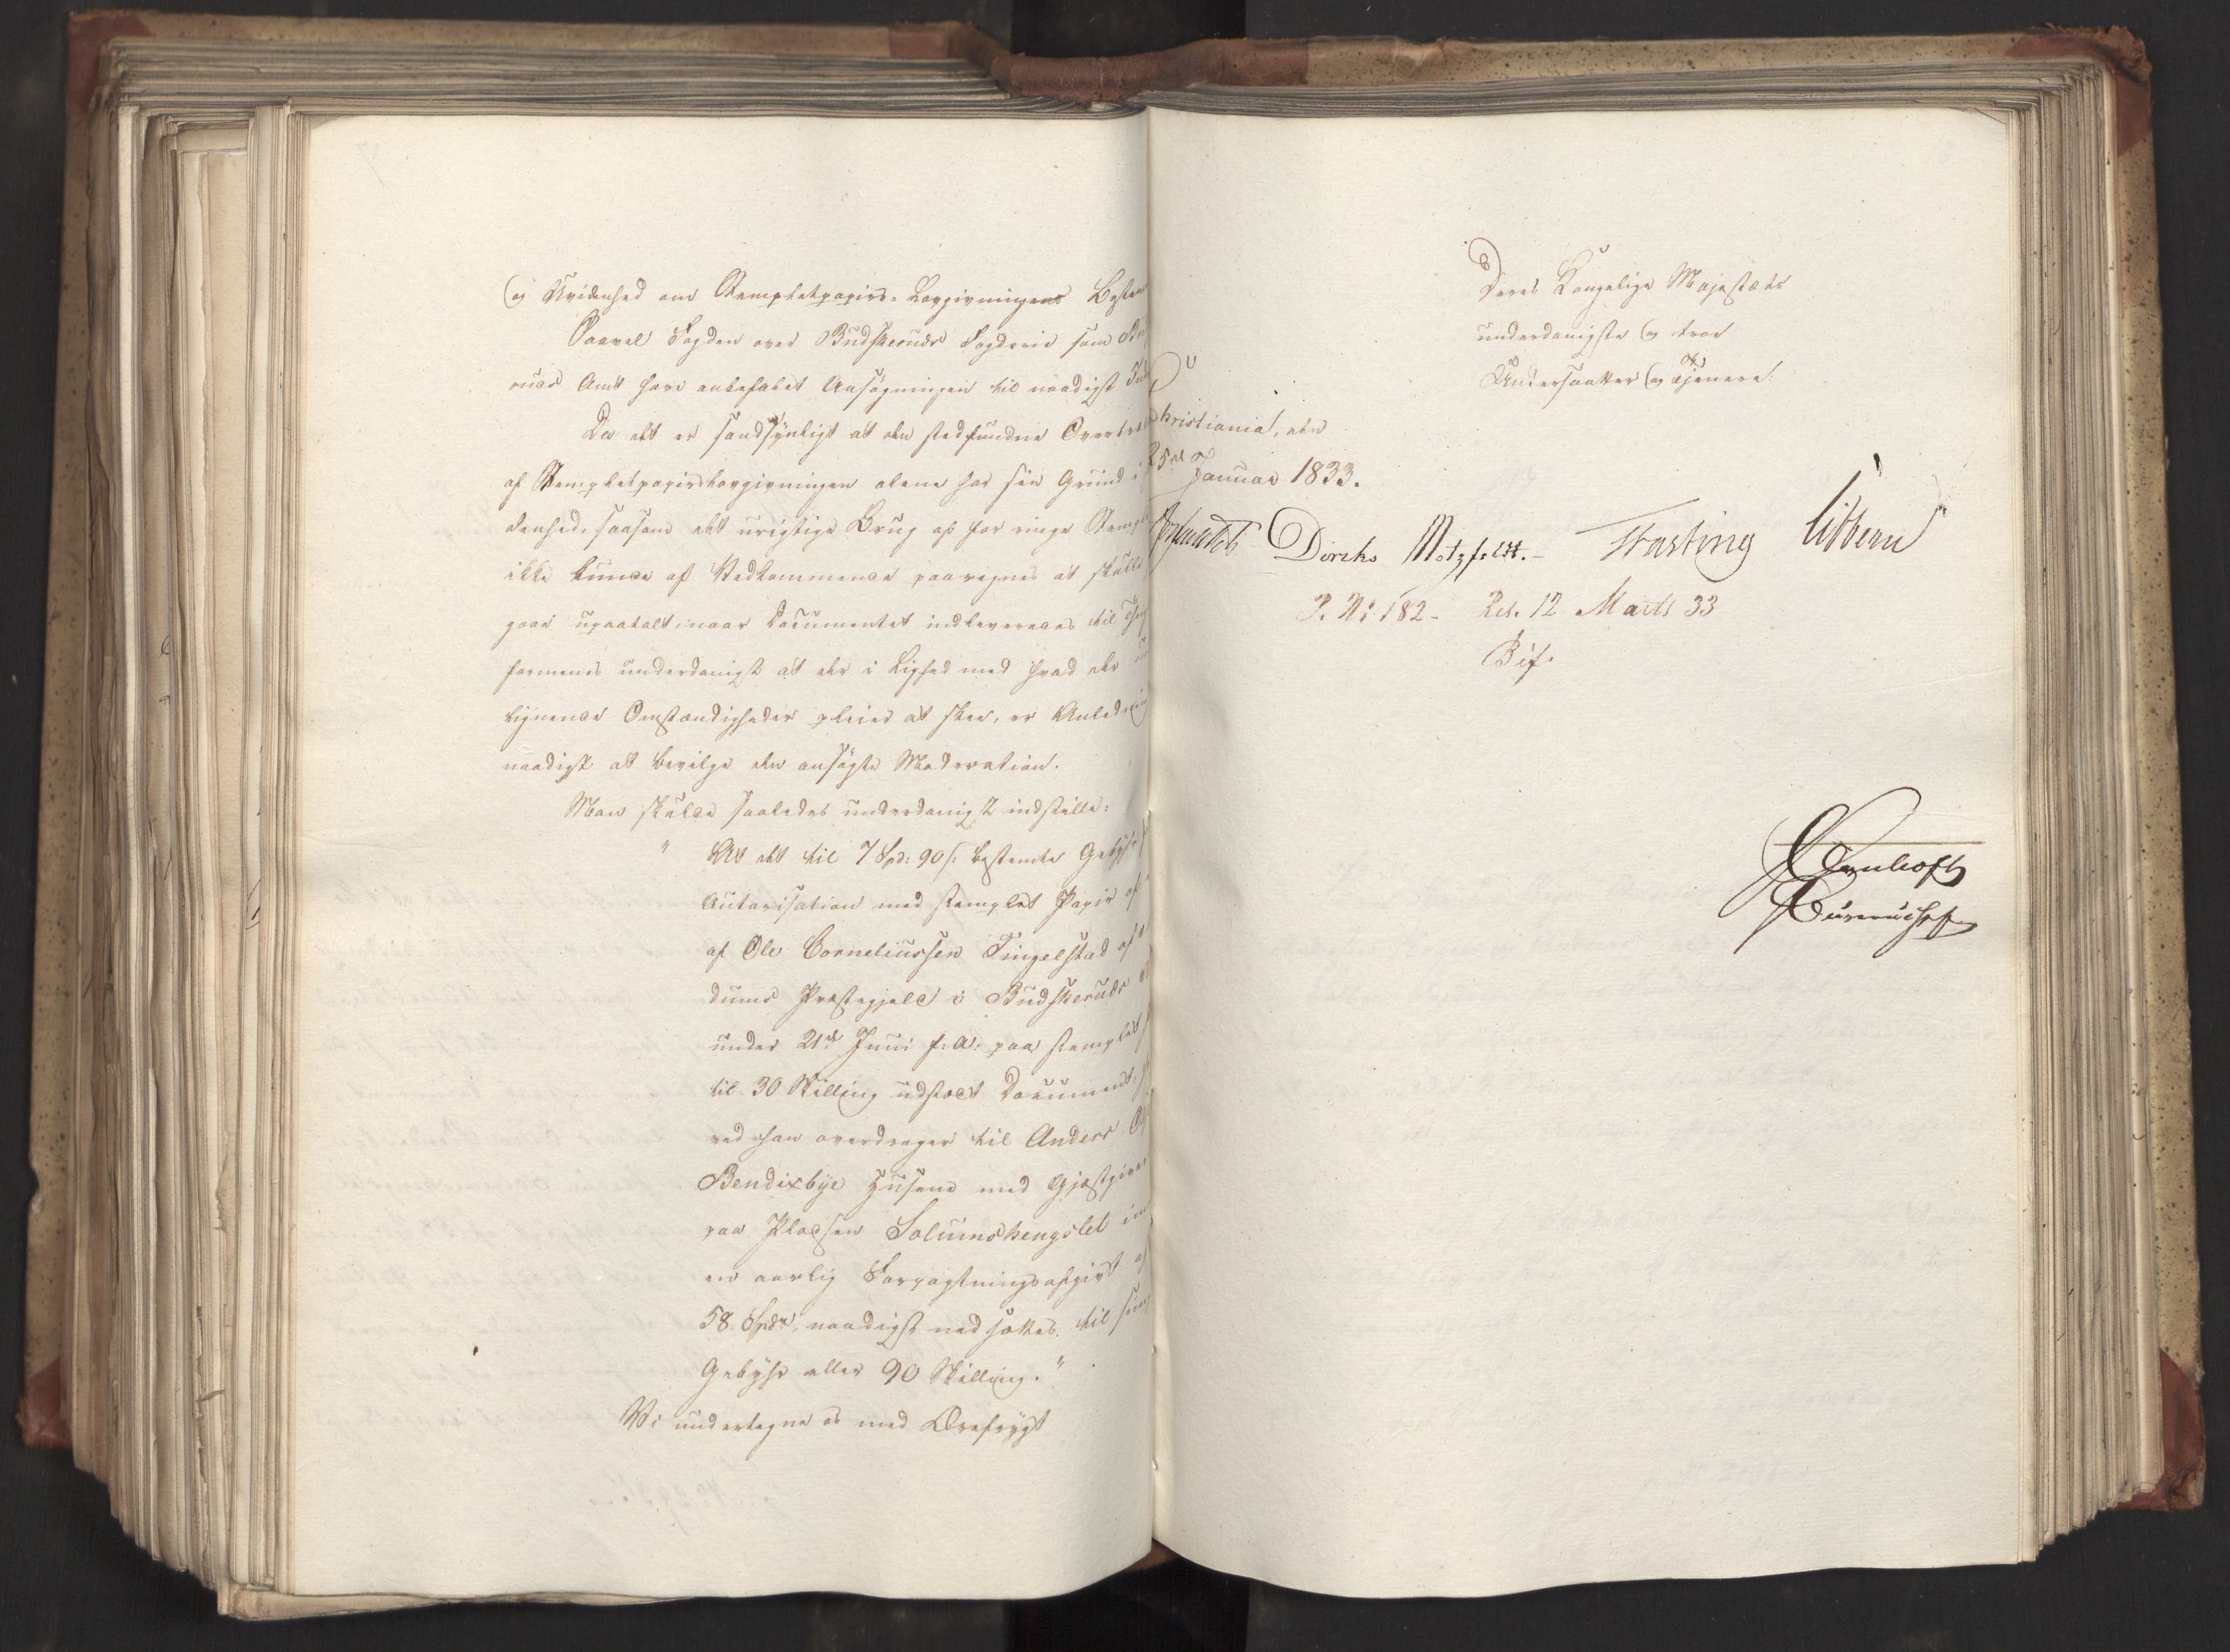 og Uvidenhed om Stempletpapirs-Lovgivningens
Saavel Fogden over Budskeruds Fogderie som
ruds Amt have anbefalet Ansøgningen til naadigst
Da det er sandsynligt at den stedfundne
af Stempletpapirslovgivningen alene har sin Grund i
denhed, saasom det urigtige Brug af for ringe
ikke kunde af Vedkommende paaregnes at skulle
gaae upaatalt, naar Documentet indleveredes til
formenes underdanigst at der i Lighed med hvad der
lignende Omstændigheder pleier at skee, er Anledning
naadigst at bevilge den ansøgte Moderation.
Man skulde saaledes underdanigst indstille:
" At det til 7 Spd: 90 s: bestemte Gebyhr
Autorisation med stemplet Papir af
af Ole Corneliussen Tingelstad af
dums Præstegjeld i Budskeruds
under 21de Juni f: A: paa stemplet
til 30 Skilling udstædt Document,
ved han overdrager til Anders
Bendixbye Husene med
paa Pladsen Solumshengslet
en aarlig Forpagtningsafgivt af
58 Spdr, naadigst nedsættes til
Gebyhr eller 90 Skilling."
Vi undertegne os med Ærefrygt
Deres Kongelige Majestæts
underdanigste og troe
Undersaatter og Tjenere.
Christiania, den
25de Januar 1833.
Diriks Motzfeldt.- Fasting
P. No 182 - Res. 12 Marts 33
Bif.